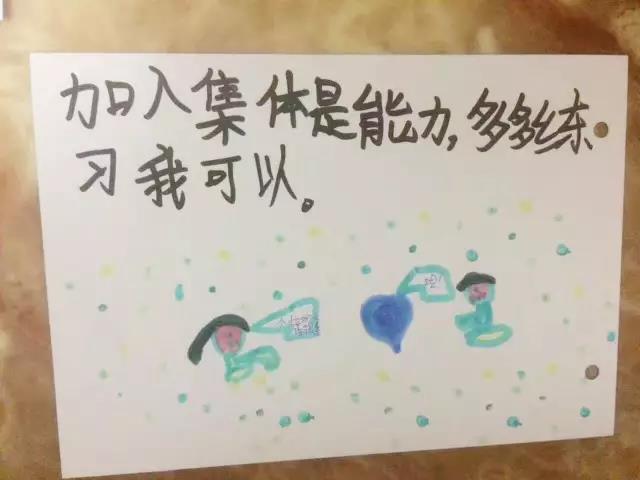 加入集体是能力,多多练
习我可以。